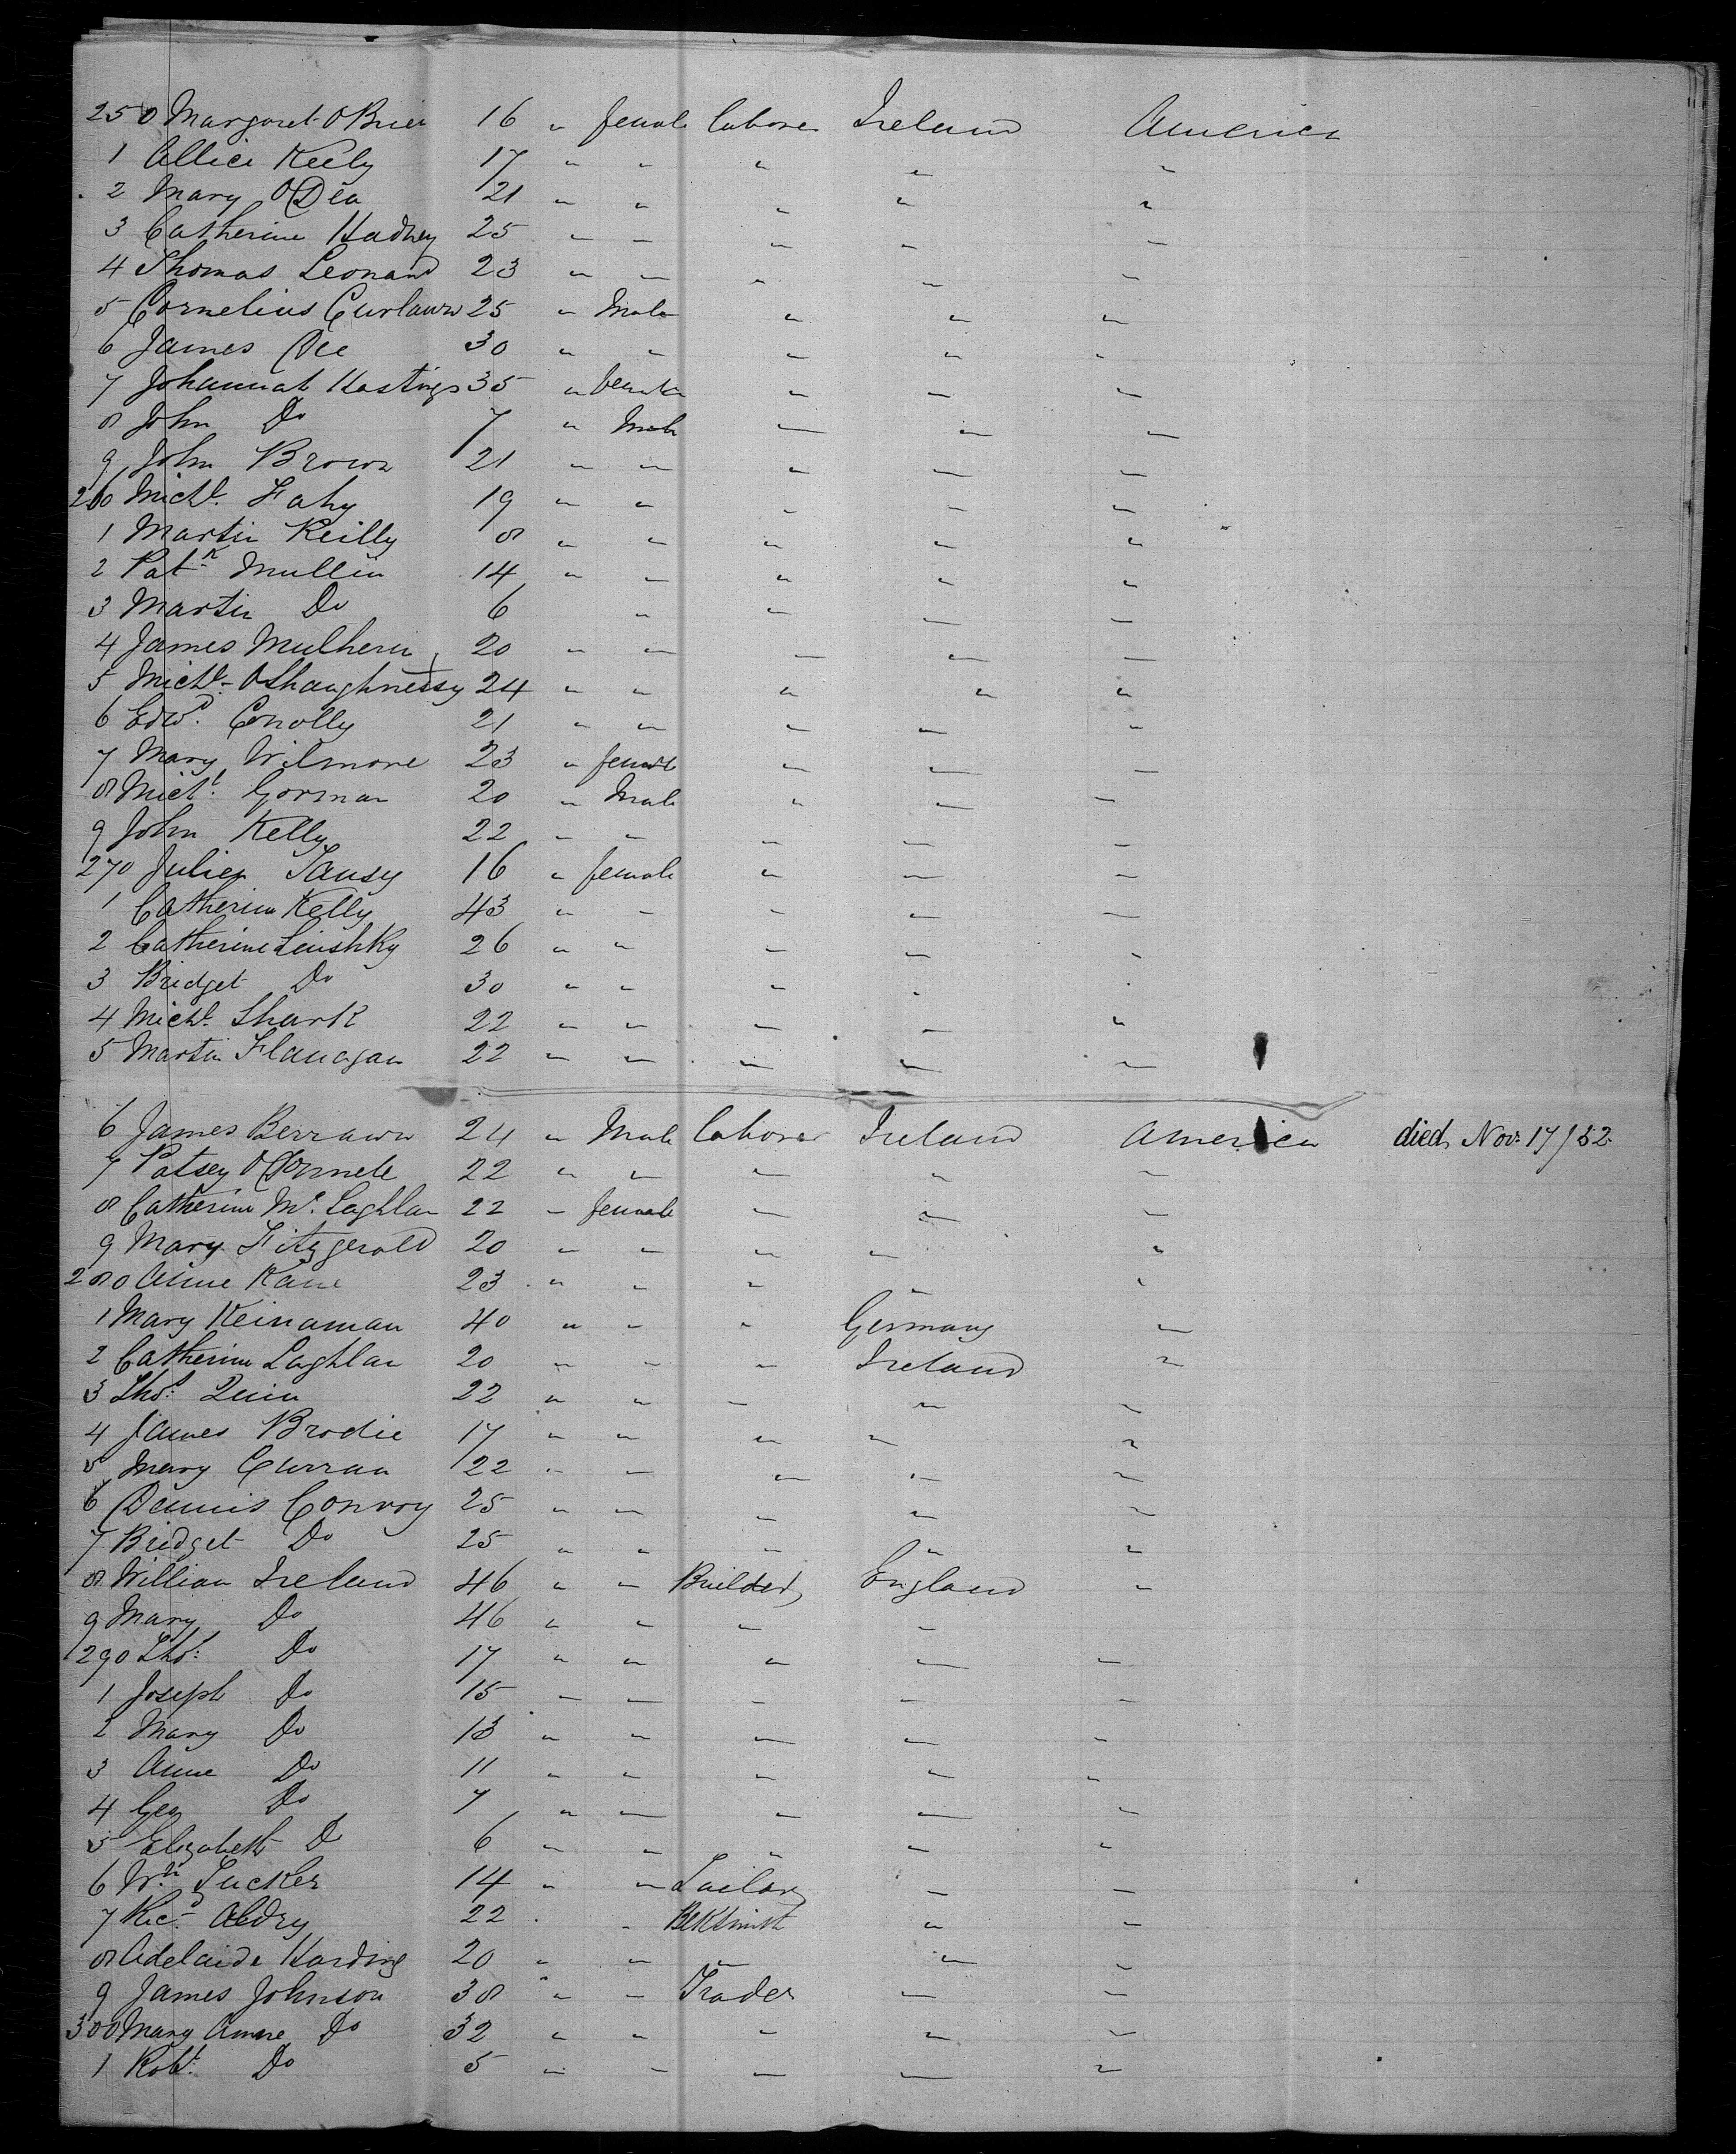 250 Margaret OBrien 16 " female labore Ireland America
1 Allice Keely 17 " " " " "
2 Mary O Dea 21 " " " " "
3 Catherine Hadney 25 " " " " "
4 Thomas Leonard 23 " " " " "
5 Cornelius Curlawn 25 " Male " " "
6 James Dee 30 " " " " "
7 Johannah Hastings 35 " female " " "
8 John Do 7 " Male " " "
9 John Brown 21 " " " " "
260 Michl. Fahy 19 " " " " "
1 Martin Reilly 8 " " " " "
2 Patk Mullin 14 " " " " "
3 Martin Do 6 " " " "
4 James Mulhern 20 " " " " "
5 Michl. OShaughnessy 24 " " " " "
6 Edwd. Conolly 21 " " " " "
7 Mary Wilmore 23 " female " " "
8 Michl. Gorman 20 " Male " " "
9 John Kelly 22 " " " " "
270 Julien Tansy 16 " female " " "
1 Catherin Kelly 43 " " " " "
2 Catherine Linshky 26 " " " " "
3 Bridget Do 30 " " " " "
4 Michl. Shark 22 " " " " "
5 Martin Flanagan 22 " " " " "
6 James Berrawn 24 " Male labore Ireland America died Nov: 17/52
7 Patsey O Connell 22 " " " " "
8 Catherine Mc. Laghlan 22 " female " " "
9 Mary Fitzgerald 20 " " " " "
280 Anne Kane 23 " " " " "
1 Mary Keinaman 40 " " " Germany "
2 Catherine Laghlan 20 " " " Ireland "
3 Thos. Quin 22 " " " " "
4 James Brodie 17 " " " " "
5 Mary Curran 22 " " " " "
6 Dennis Conroy 25 " " " " "
7 Bridget Do 25 " " " " "
8 William Ireland 46 " " Builder England "
9 Mary Do 46 " " " "
290 Thos. Do 17 " " " " "
1 Joseph Do 15 " " " " "
2 Mary Do 13 " " " " "
3 Anne Do 11 " " " " "
4 Geo Do 7 " " " " "
5 Elizabeth Do 6 " " " " "
6 Wm. Tucker 14 " " Tailor " "
7 Ricd. Aldry 22 " " BlkSmith " "
8 Adelaide Harding 20 " " " " "
9 James Johnson 38 " " Trader " "
300 Mary Anne Do 32 " " " " "
1 Robt. Do 5 " " " " "